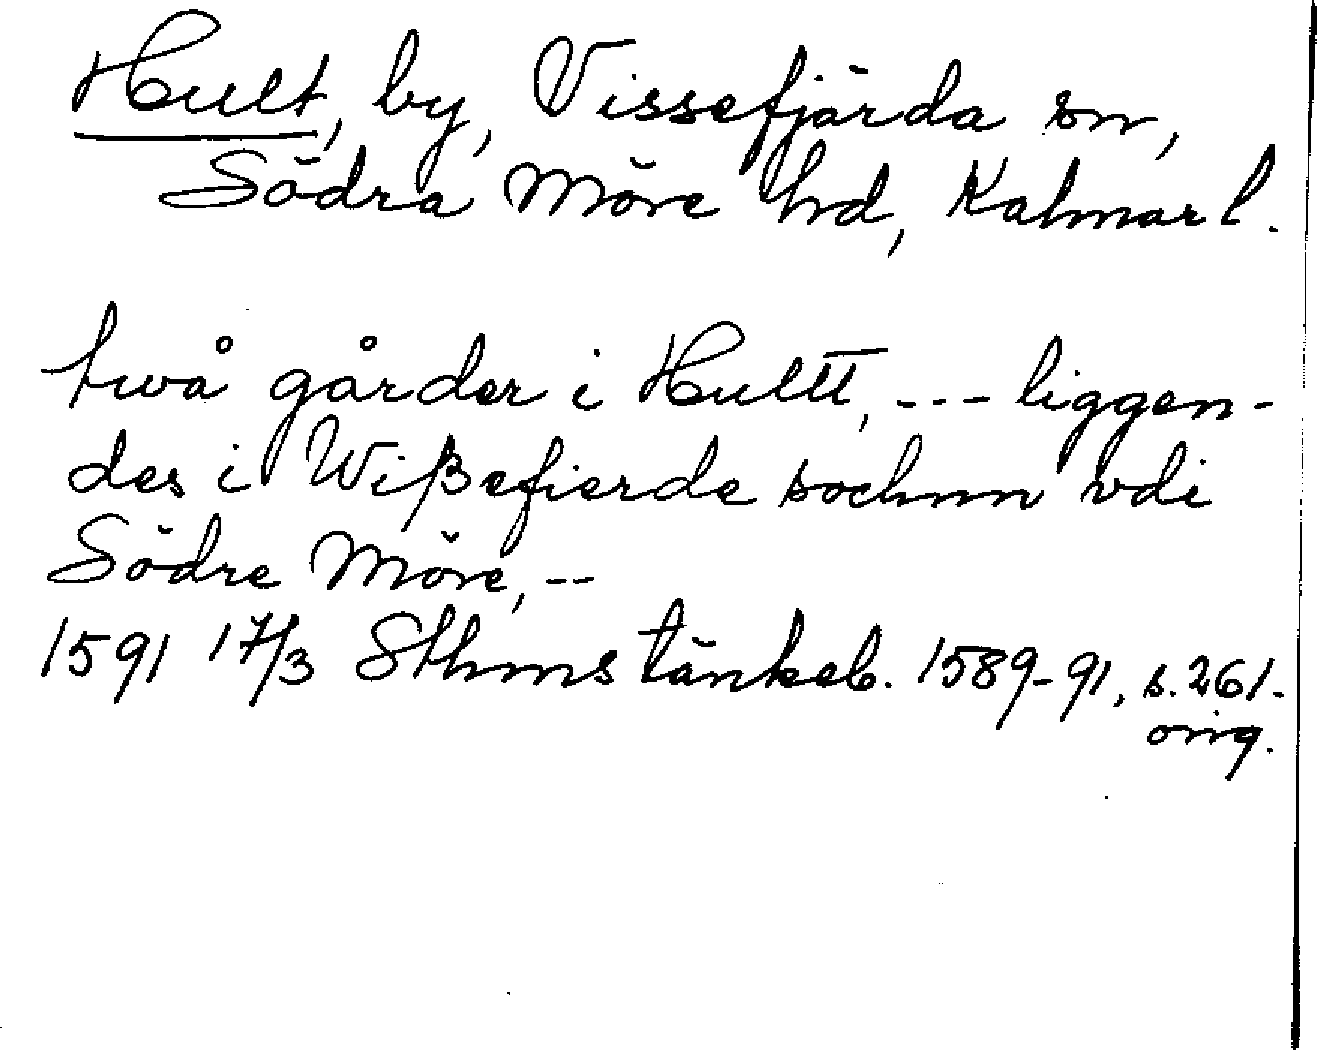 Hult, by, Vissefjärda sn,
Södra Möre hd, Kalmar l.
twå gårder i Hultt, --- liggen-
des i Wißefierde sochnn vdi
Södre Möre, --
1591 17/3 Sthms tänkeb. 1589-91, s. 261.
orig.